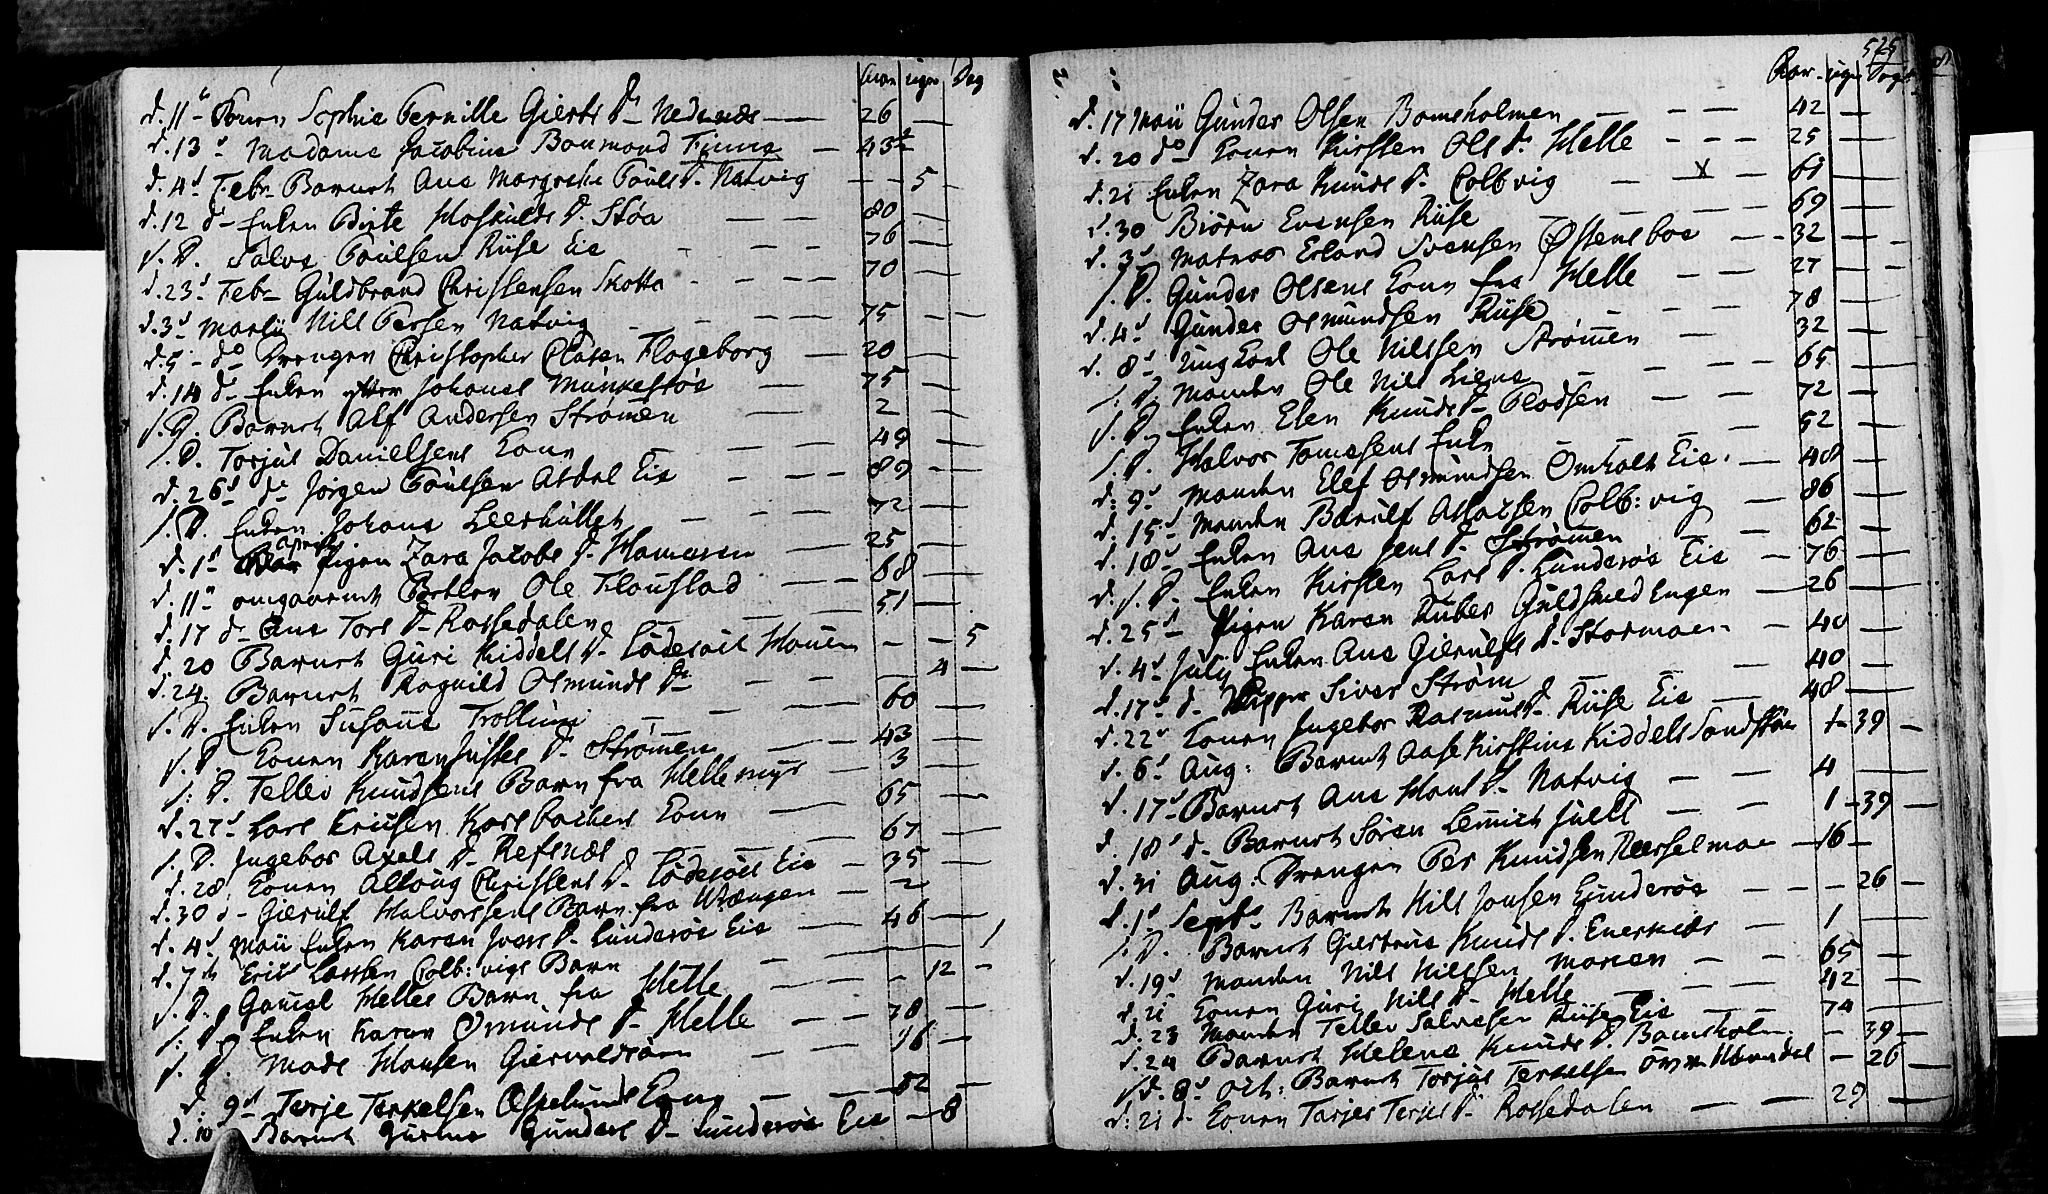 Aar uger Dag
d. 11 Konen Sophie Pernille Gierts D. Nedenæs 26
d. 13 Madame Jacobine Boumond Finne 43½
d. 4 Febr Barnet Ane Margrethe Pouls D. Natvig 5
d. 12 d Enken Birte Hoskulds D. Støa 80
s. D. Salve Poulsen Riise Eie 76
d. 23 Febr Guldbrand Christensen Skotte 70
d. 3 Martii Nils Persen Natvig 75
d. 5 do Drengen Christopher Clasen Flageborg 20
d. 14 d Enken Johanes Munkestøe 75
s. D. Barnet Alf Andersen Strømen 2
s. D. Torjus Danielsens Kone 49
d. 26 d. Jørgen Poulsen Asdal Eie 89
s. D. Enken Johane Leerhullet 72
d. 1 April Pigen Zara Jacobs D. Hameren 25
d. 11 omgaaende Betler Ole Flougstad 68
d. 17 d Ane Tors D. Rossedalen 51
d. 20 Barnet Guri Kiddels D. Lødesøl Hauen 5
d. 24 Barnet Ragnild Osmunds D. 4
s. D. Enken Susane Trollmyr 60
s. D. Konen Karen Justes D. Strømen 43
s. D. Tellev Knudsens Barn fra Hellemyr 3
d. 27 Lars Ericsen Kars bachens Kone 65
s. D. Ingebor Axels D. Refsnes 67
d. 28 Konen Alloug Christens D. Lødesøl Eie 35
d. 30 d Gierulf Halvorsens Barn fra Vrængen 2
d. 4 Maii Enken Karen Joens D. Lunderøe Eie 46
d. 7 Erics Lassen Colb:vigs Barn 1
s. D. Gamel Helles Barn fra Helle 12
s. D. Enken Karen Osmunds D. Helle 78
s. D. Mads Hansen Giervoldsøen 96
d. 9 Terje Terkelsen Kone 52
d. 10 Barnet Gurine Gunders D. Lunderøe Eie 8
525
Aar uger Dage
d. 17 Maii Gunder Olsen Bomsholmen 42
d. 20 do Konen Kirsten Ols D. Helle 25
d. 21 Enken Zara Knuds D. Colbvig x 61
d. 30 Biørn Evensen Riise 69
d. 3 Matros Erland Svensen Østensboe 32
s. D. Gunder Olsens Kone fra Helle 27
d. 4 Gunder Osmundsen Riise 78
d. 8 Ung Karl Ole Nilssen Strømen 32
s. D. Manden Ole Nils Liene 65
s. D. Enken Elen Knuds D. Plodsen 72
s. D. Halvor Tomesens Enke 52
d. 9 Manden Elef Osmundsen Omholt Eie 48
d. 15 Manden Bærulf Aslacsen Colb:vig 86
d. 18 Enken Ane Jens D. Strømen 62
d. s. D. Enken Kirsten Lars D. Lunderøe Eie 76
d. 25 Pigen Karen Guldsmed Engen 26
d. 4 July Enken Ane Gierulfs D. Stormoen 40
d. 17 d. Siver Strøm 40
d. 22 Konen Ingebor Rasmus D. Riise Eie 48
d. 6 Aug: Barnet Aase Kirstine Kiddels Sandstøe 1 39
d. 17 Barnet Ane Hans D. Natvig 4
d. 18 d. Barnet Søren Lemich Juell 1 39
d. 31 Aug: Drengen Per Knudsen Neerselmoe 16
d. 1 Septb Barnet Nils Jonsen Lunderøe 26
s. D. Barnet Giertrue Knuds D. Enerkiær 1
d. 19 Manden Nils Nilssen Moner 65
d. 21 Konen Guri Nils D. Helle 42
d. 23 Manden Tellev Salvesen Riise Eie 74
d. 24 Barnet Helene Knuds D. Bomsholm 39
d. 8 Oct: Barnet Torjus Terkelsen 26
d. 21 d Konen Tarjer Terjes D. Rossedalen 29